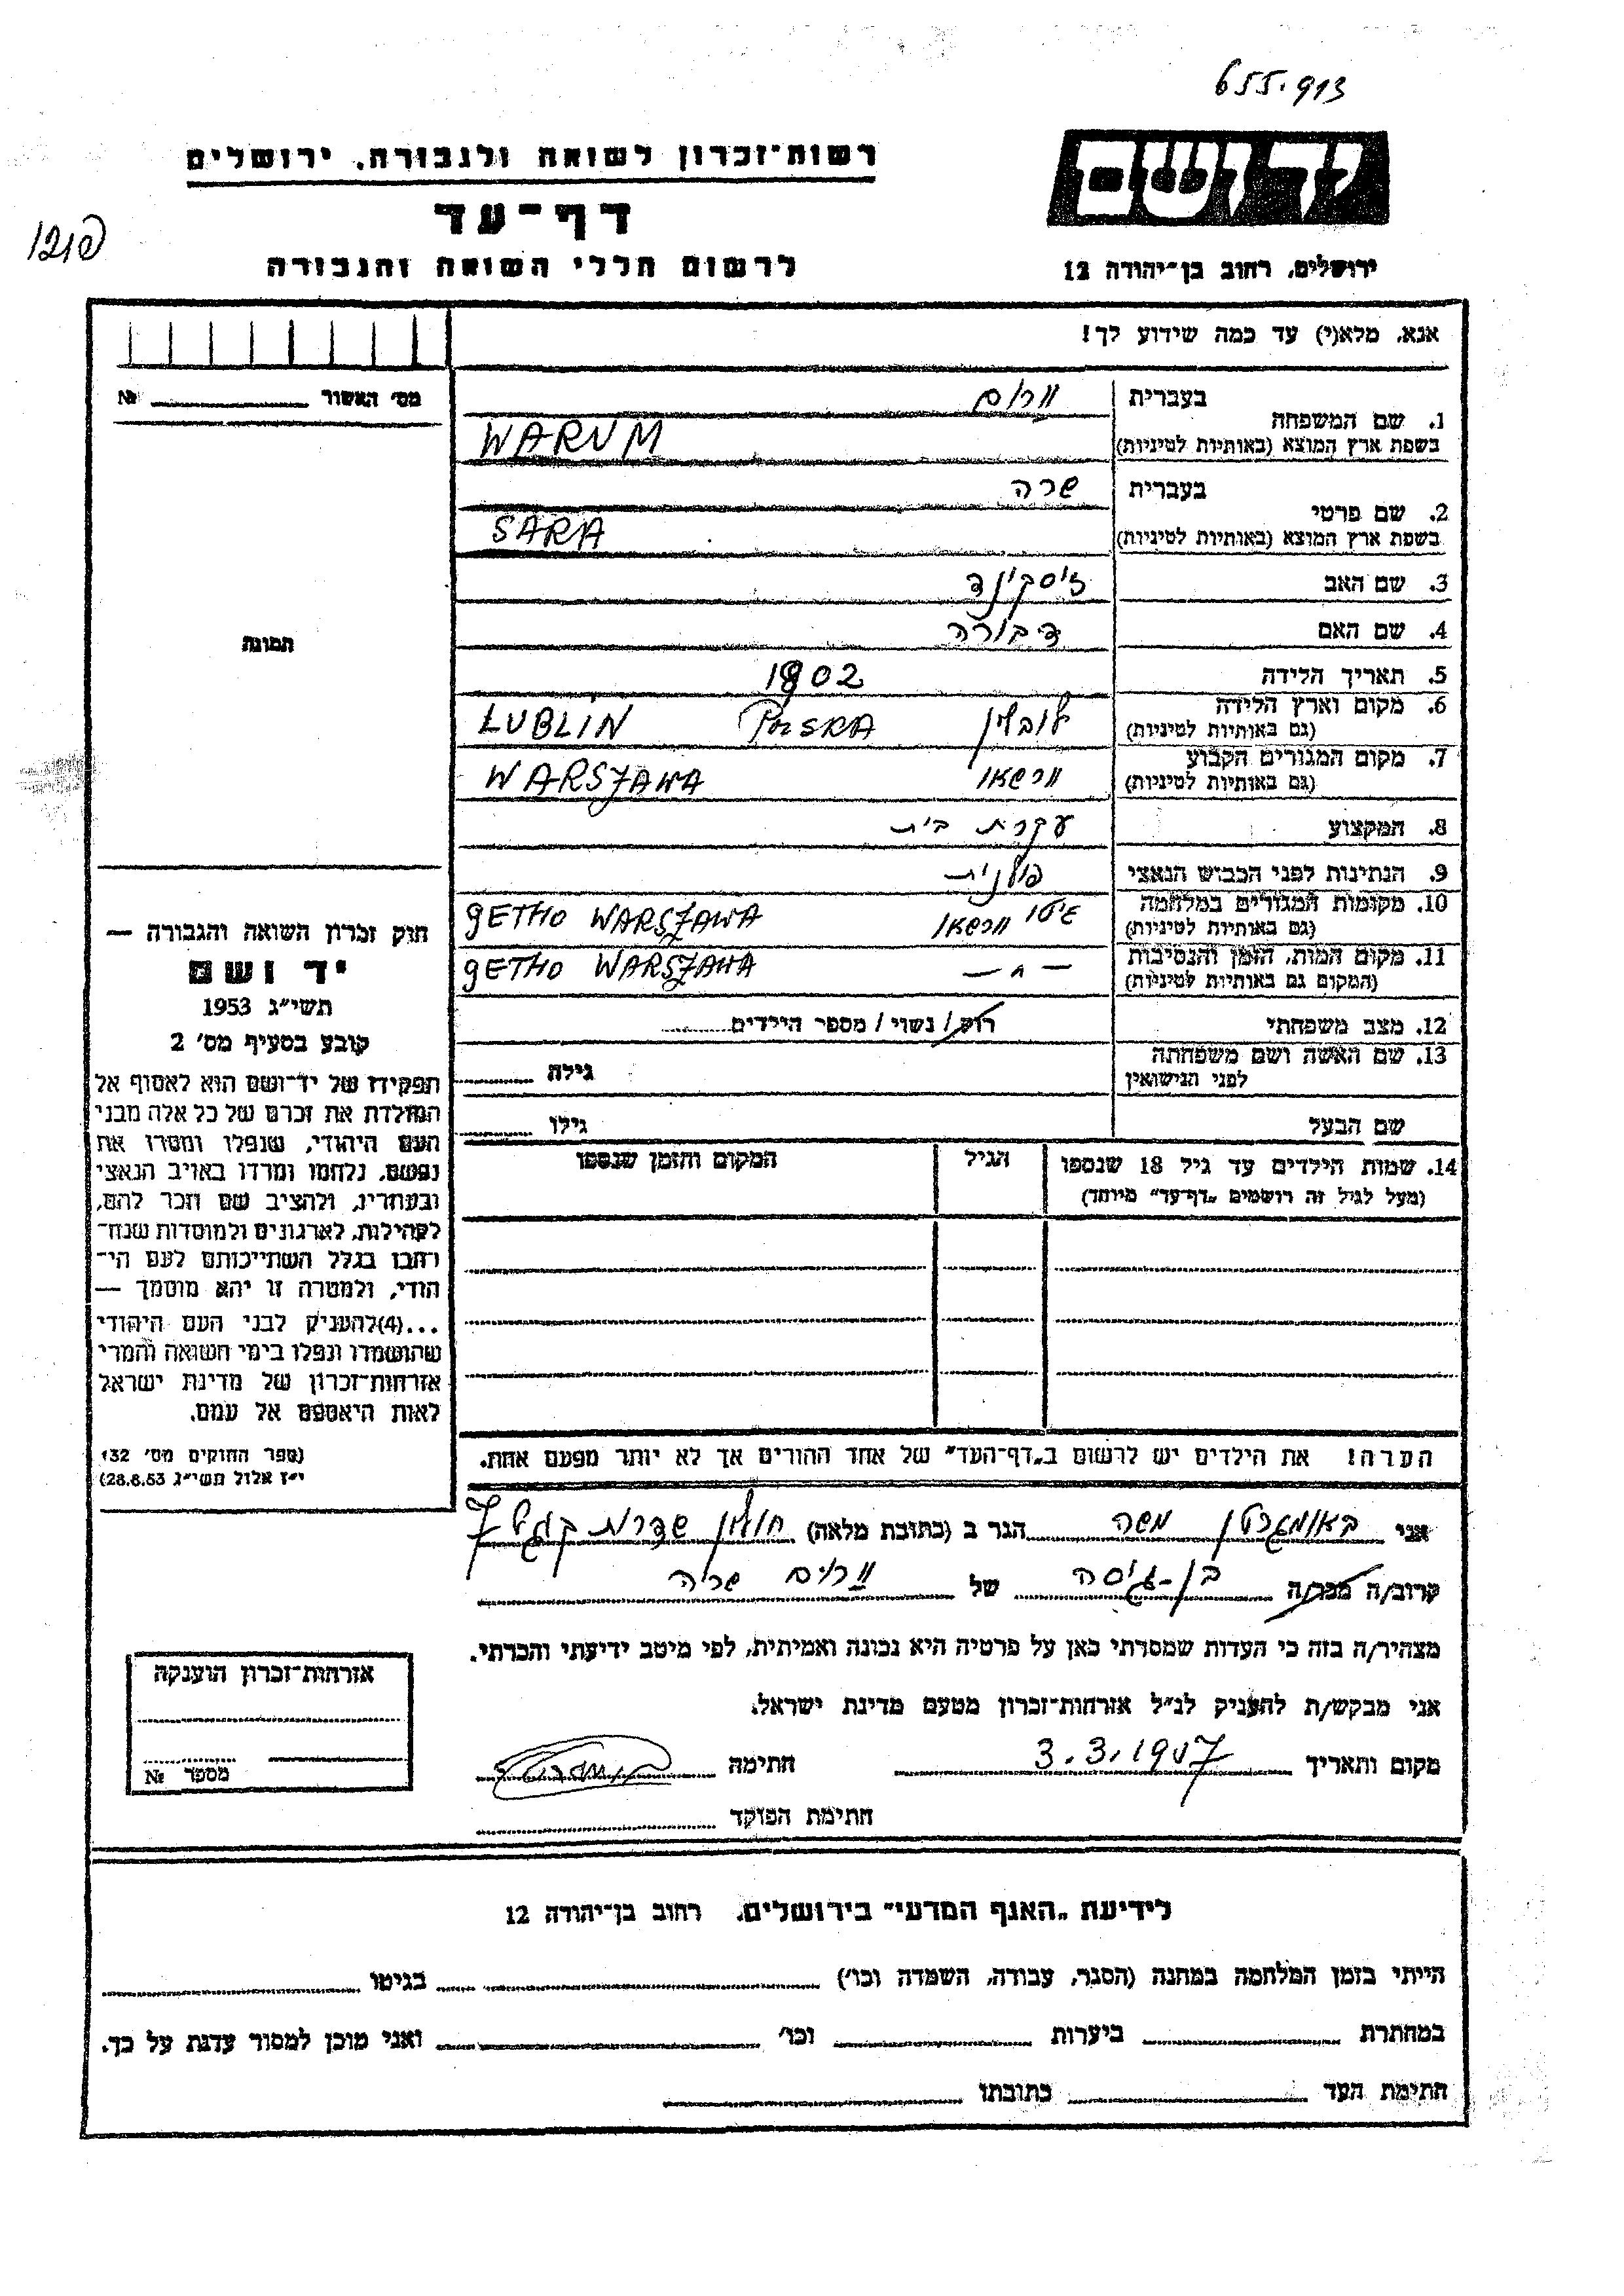 655.913
יד ושם
רשות-זכרון לשואה ולגבורה, ירושלים
דף-עד
לרשום חללי השואה והגבורה
ירושלים, רחוב בן-יהודה 12
אנא, מלא(י) עד כמה שידוע לך!
מס׳ האשור № 
1. שם המשפחה
בעברית ורום
בשפת ארץ המוצא (באותיות לטיניות) WARUM
2. שם פרטי
בעברית שרה
בשפת ארץ המוצא (באותיות לטיניות) SARA
3. שם האב זיסקינד
4. שם האם דבורה
5. תאריך הלידה 1902
6. מקום וארץ הלידה לובלין POLSKA LUBLIN
(גם באותיות לטיניות)
7. מקום המגורים הקבוע וורשאו WARSZAWA
(גם באותיות לטיניות)
8. המקצוע עקרת בית
9. הנתינות לפני הכבוש הנאצי פולנית
10. מקומות המגורים במלחמה גיטו וורשאו GETHO WARSZAWA
(גם באותיות לטיניות)
11. מקום המות, הזמן והנסיבות — " — GETHO WARSZAWA
(המקום גם באותיות לטיניות)
12. מצב משפחתי רווק/ נשוי/ מספר הילדים
13. שם האשה ושם משפחתה
לפני הנישואין גילה
שם הבעל גילו
14. שמות הילדים עד גיל 18 שנספו הגיל המקום והזמן שנספו
(מעל לגיל זה רושמים „דף-עד״ מיוחד)
הערה! את הילדים יש לרשום ב„דף-העד״ של אחד ההורים אך לא יותר מפעם אחת.
תמונה
חוק זכרון השואה והגבורה —
יד ושם
תשי״ג 1953
קובע בסעיף מס׳ 2
תפקידו של יד-ושם הוא לאסוף אל
המולדת את זכרם של כל אלה מבני
העם היהודי, שנפלו ומסרו את
נפשם, נלחמו ומרדו באויב הנאצי
ובעוזריו, ולהציב שם וזכר להם,
לקהילות, לארגונים ולמוסדות שנח-
רבו בגלל השתייכותם לעם הי-
הודי, ולמטרה זו יהא מוסמך —
...(4)להעניק לבני העם היהודי
שהושמדו ונפלו בימי השואה והמרי
אזרחות-זכרון של מדינת ישראל
לאות היאספם אל עמם.
(ספר החוקים מס׳ 132
י״ז אלול תשי״ג 28.8.53)
אני באומגרטן משה הגר ב (כתובת מלאה) חולון שדרות קגל 7
קרוב/ה מכר/ה בן-גיסה של וורום שרה
מצהיר/ה בזה כי העדות שמסרתי כאן על פרטיה היא נכונה ואמיתית, לפי מיטב ידיעתי והכרתי.
אני מבקש/ת להעניק לנ״ל אזרחות-זכרון מטעם מדינת ישראל.
מקום ותאריך 3.3.1957 חתימה
חתימת הפוקד
אזרחות-זכרון הוענקה
מספר №
לידיעת „האגף המדעי״ בירושלים, רחוב בן-יהודה 12
הייתי בזמן המלחמה במחנה (הסגר, עבודה, השמדה וכו׳) בגיטו
במחתרת ביערות וכו׳ ואני מוכן למסור עדות על כך.
חתימת העד כתובתו